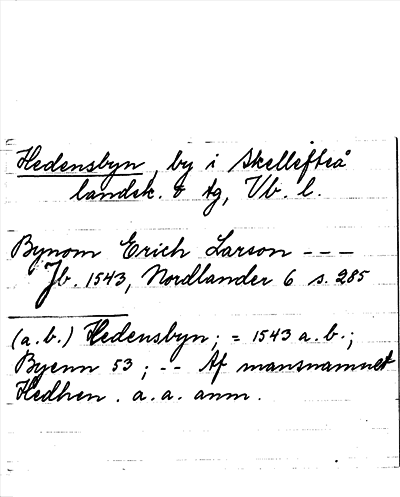 Hedensbyn, by i Skellefteå
landsk. & tg, Vb. l.
Bynom Erich Larson - - -
Jb. 1543, Nordlander 6 s. 285
(a.b.) Hedensbyn; = 1543 a.b.;
Byenn 53; -- Af mansnamnet
Hedhen. a.a. anm.